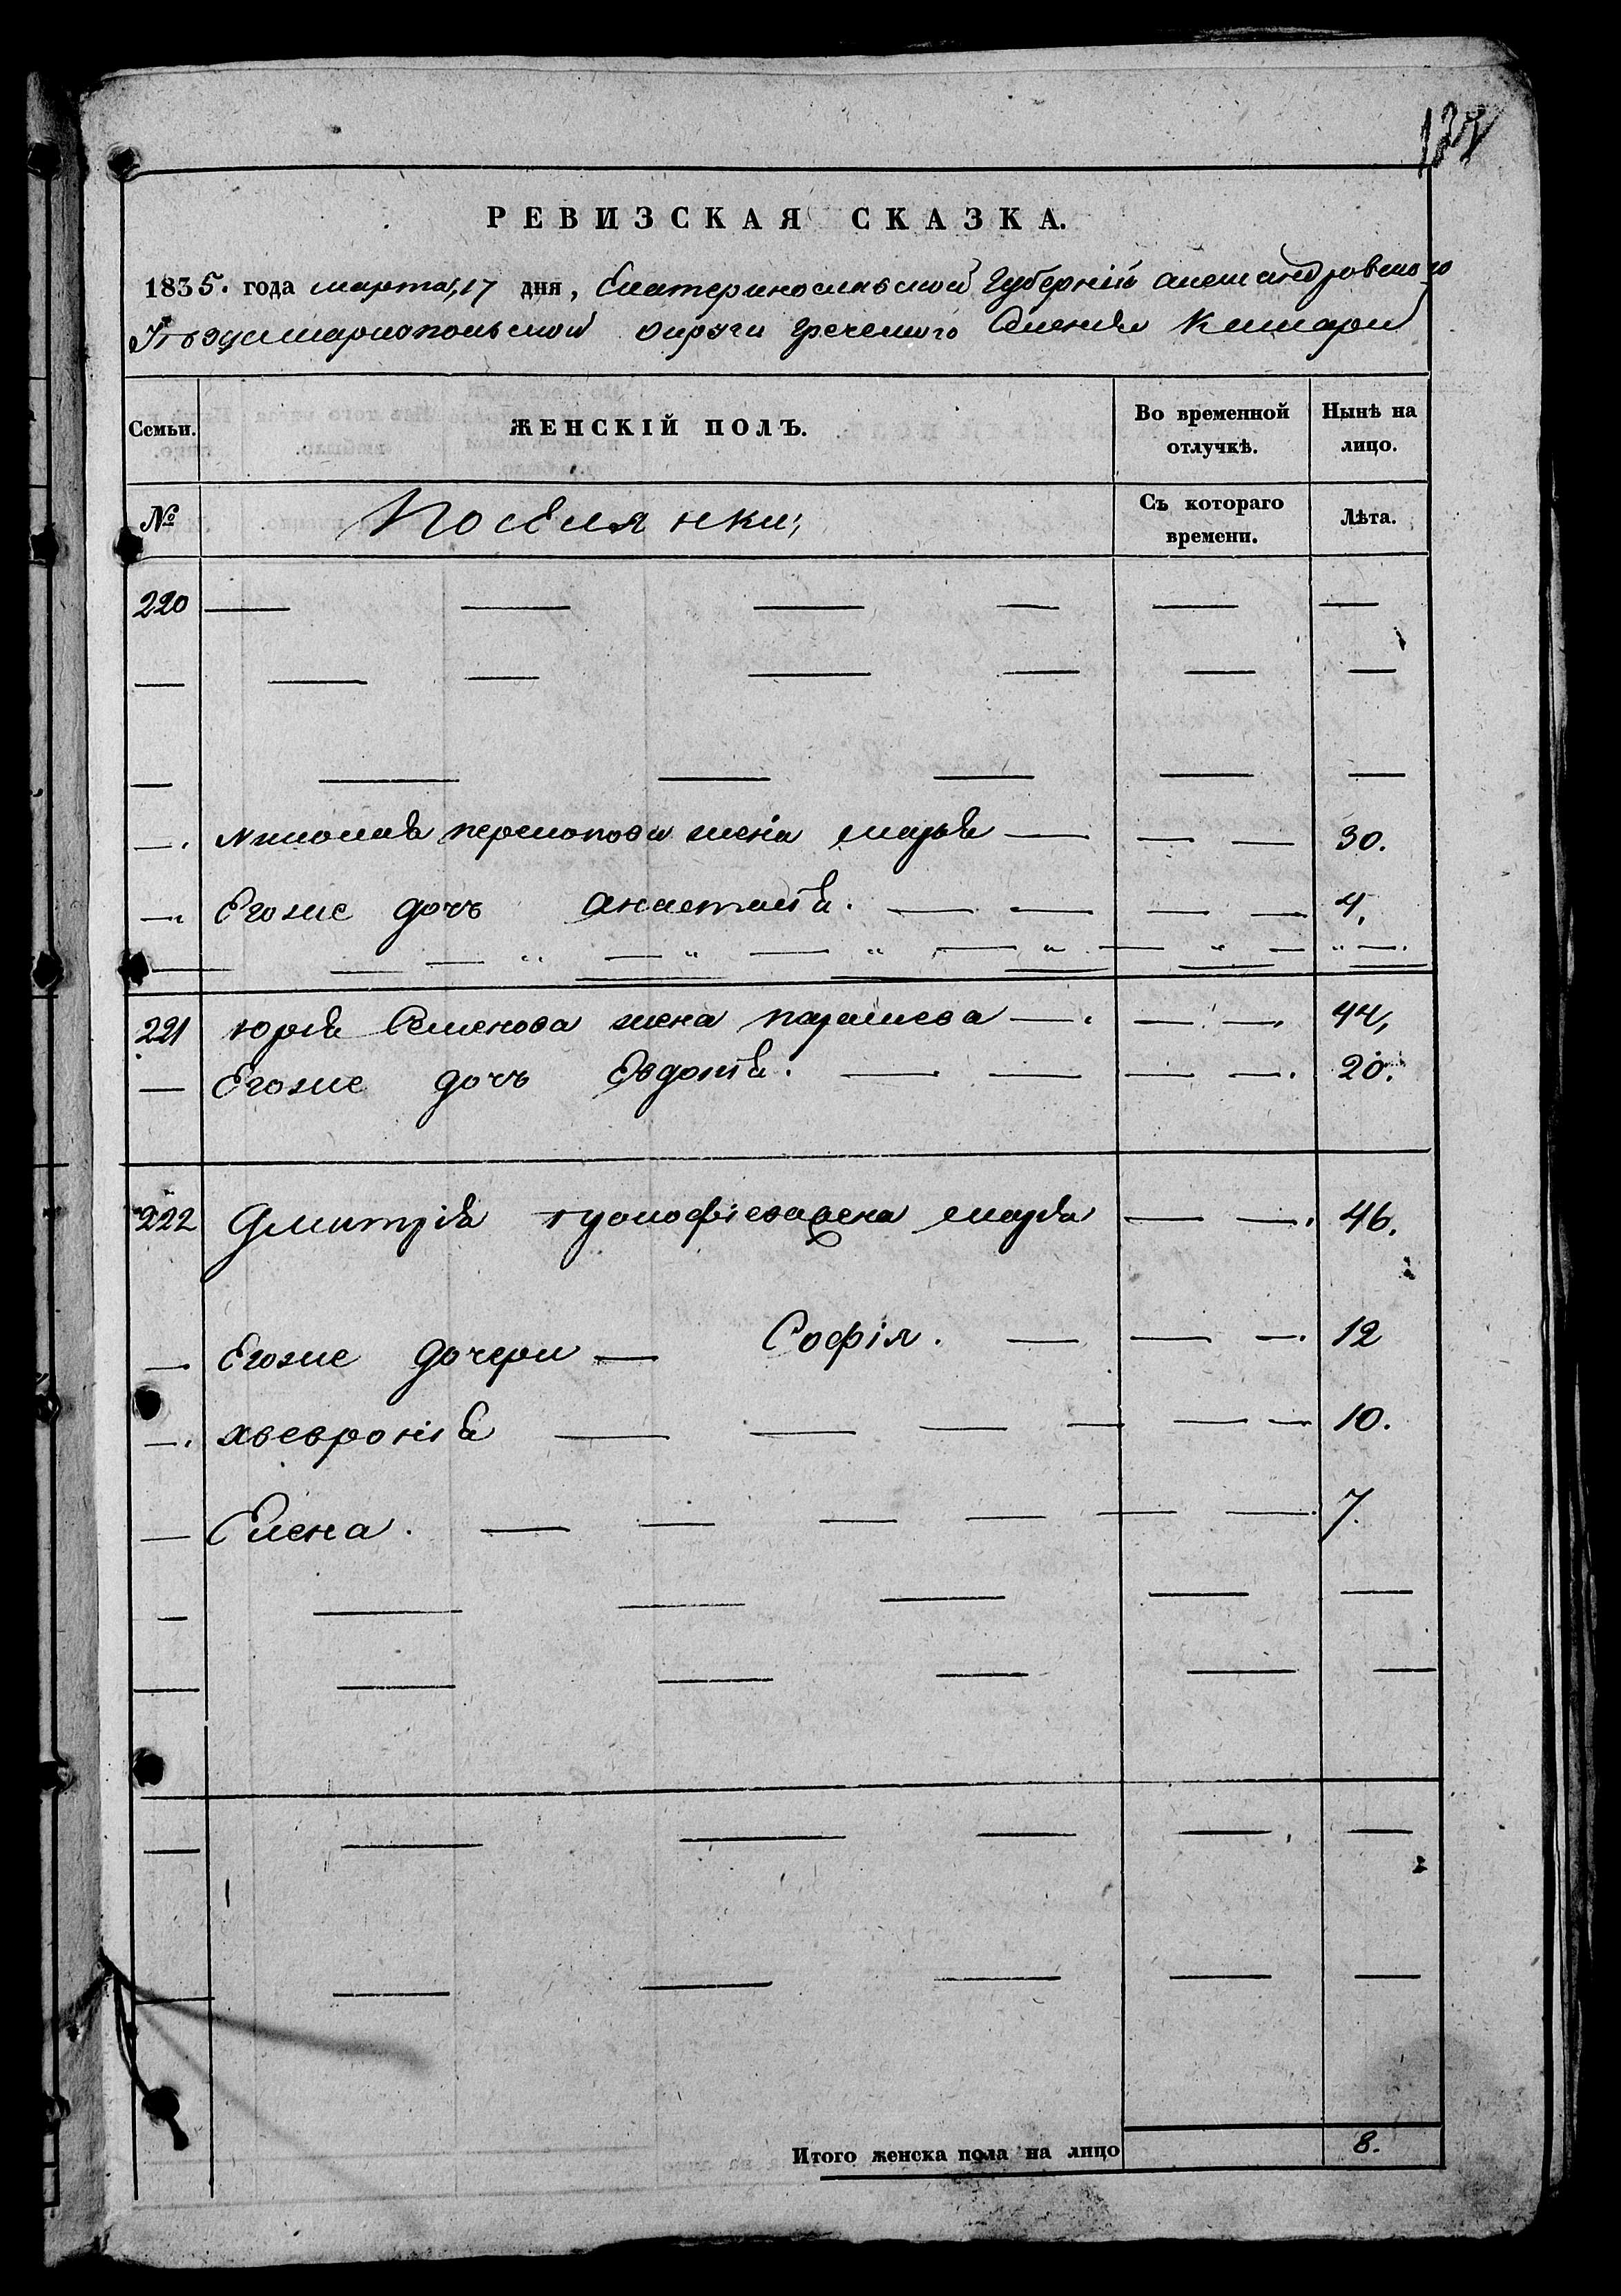 РЕВИЗСКАЯ СКАЗКА.
1835. года марта, 17 дня, Екатеринославской Губернiи александровского
Уѣзда мариопольской округи греческого Селенiя
Семьи. ЖЕНСКIЙ ПОЛЪ. Во временной отлучкѣ. Нынѣ на лицо.
№ Поселянки; Съ котораго времени. Лѣта.
220 — — — — — —
— — — — — — —
— — — — — —
— николая жена марья — — — 30.
— Егоже дочь анастасiя. — — — — 4,
221 юрiя Семенова жена параскева — — — 44,
— Егоже дочь Евдокiя. — — — — 20.
222 Дмитрiя жена марiя — — 46.
— Егоже дочери — Софiя. — — — 12
— хвевронiя — — — — — — 10.
— Елена. — — — — — — 7.
— — — — — —
— — — — — —
— — — — — —
— — — — — —
Итого женска пола на лицо 8.